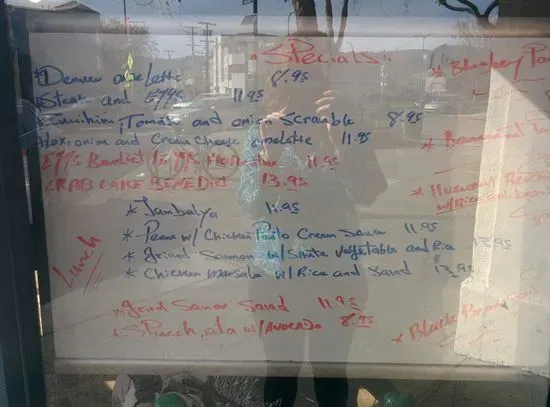 Specials
* Denver omelette 8.95
* Steak and Eggs 11.95
Zucchini, Tomato and onion Scramble 8.95
Lox, onion and Cream Cheese omelette 11.95
Eggs Benedict 11.95
CRAB CAKE BENEDict 13.95
Lunch
* Jambalya 11.95
* Penne w/ Chicken Pesto Cream Sauce 11.95
* grilled Salmon w/ Saute Vegetable and Rice 13.95
* Chicken marsala w/ Rice and Salad 13.95
* grilled Salmon Salad 11.95
* w/ AVOCADO 8.95
* Blueberry Pan
* Huevos
w/ Rice and bean
* Black